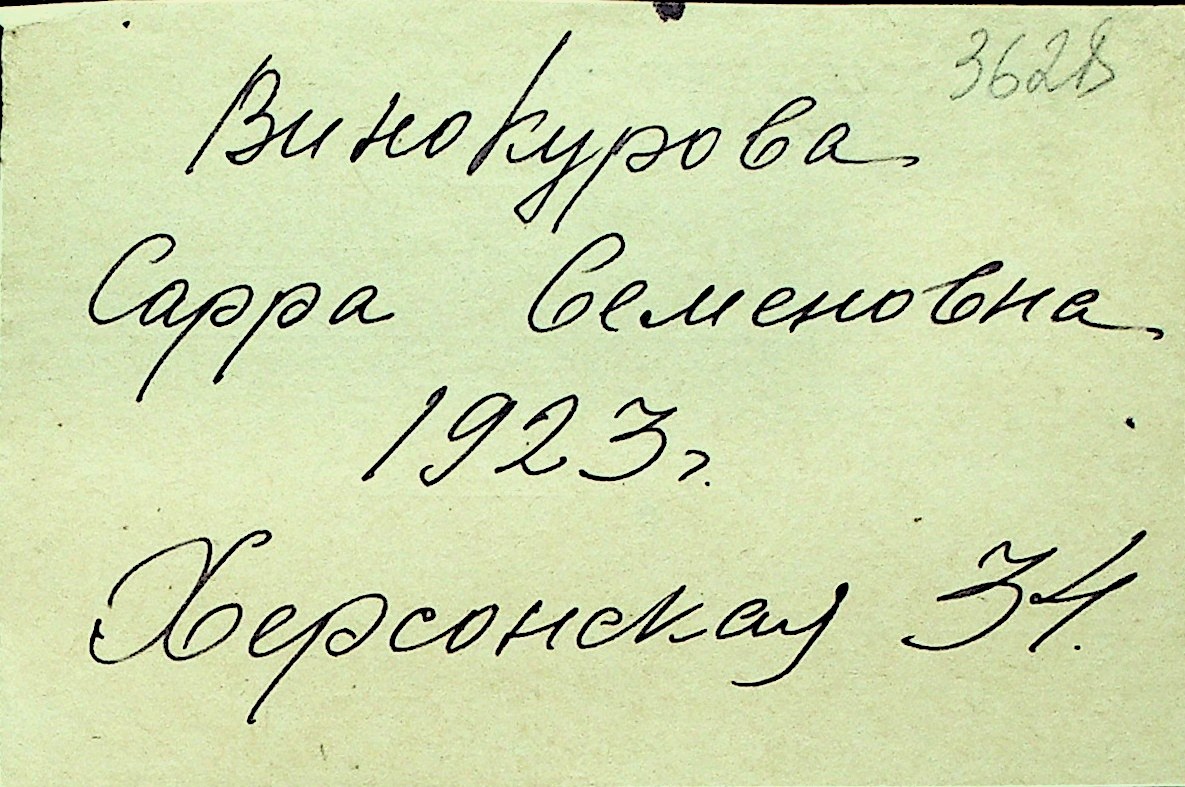 Винокурова
Сарра Семеновна
1923г.
Херсонская 34.